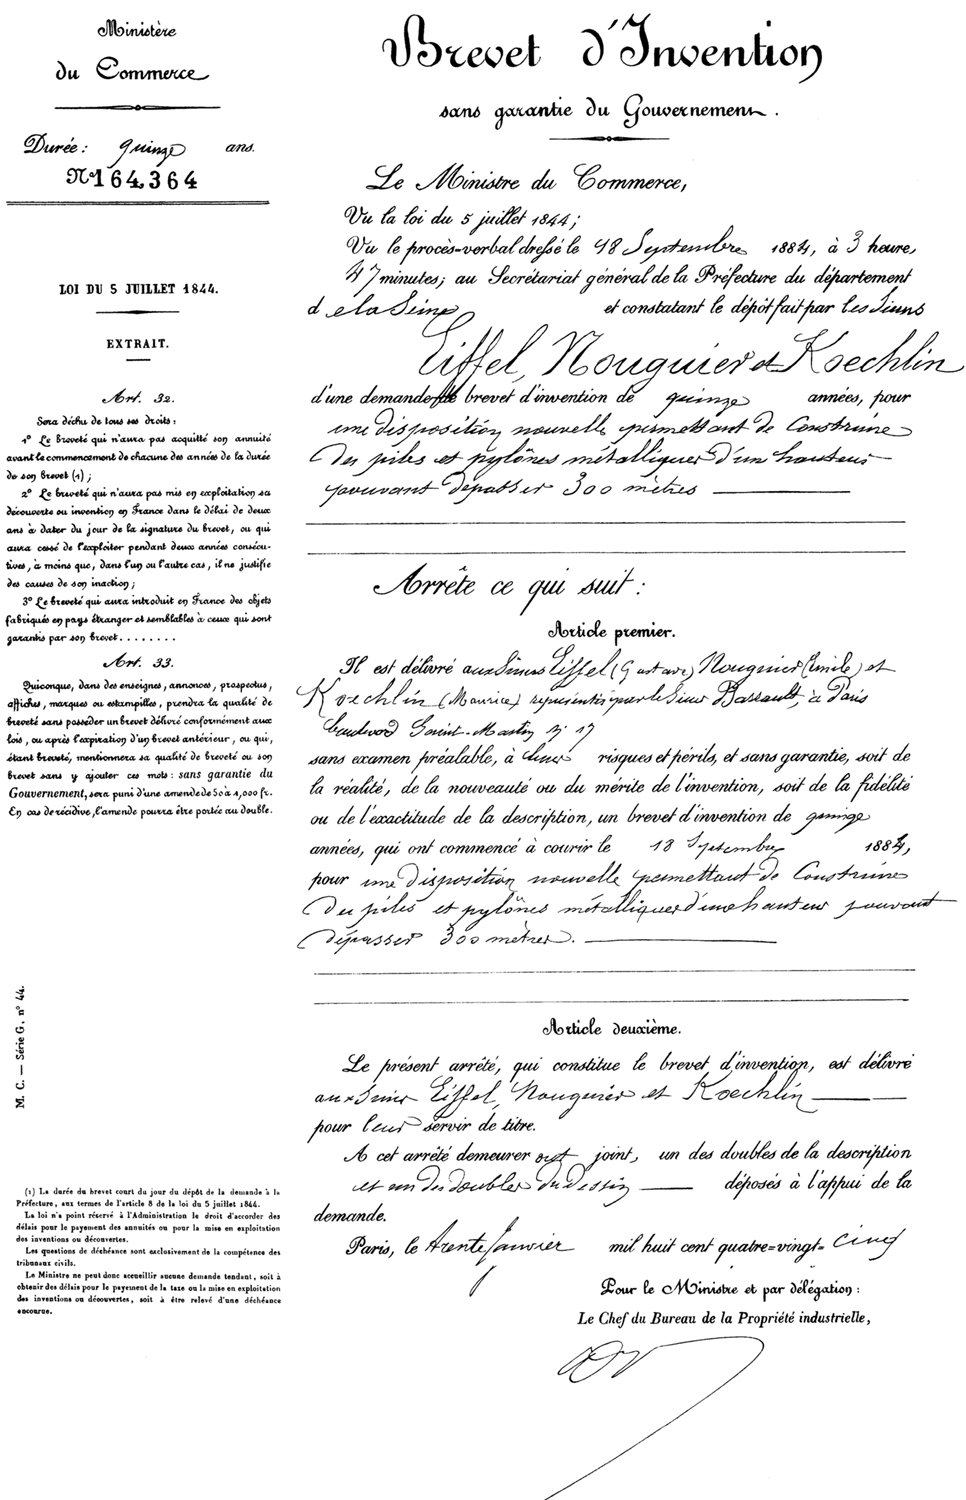 Ministère
du Commerce
Durée: quinze ans.
No 164,364
LOI DU 5 JUILLET 1844.
EXTRAIT.
Art. 32.
Sera déchu de tous ses droits:
1º Le breveté qui n'aura pas acquitté son annuité
avant le commencement de chacune des années de la durée
de son brevet (1);
2º Le breveté qui n'aura pas mis en exploitation sa
découverte ou invention en France dans le délai de deux
ans à dater du jour de la signature du brevet, ou qui
aura cessé de l'exploiter pendant deux années consécu-
tives, à moins que, dans l'un ou l'autre cas, il ne justifie
des causes de son inaction;
3º Le breveté qui aura introduit en France des objets
fabriqués en pays étranger et semblables à ceux qui sont
garantis par son brevet........
Art. 33.
Quiconque, dans des enseignes, annonces, prospectus,
affiches, marques ou estampilles, prendra la qualité de
breveté sans posséder un brevet délivré conformément aux
lois, ou après l'expiration d'un brevet antérieur, ou qui,
étant breveté, mentionnera sa qualité de breveté ou son
brevet sans y ajouter ces mots: sans garantie du
Gouvernement, sera puni d'une amende de 50 à 1,000 fr.
En cas de récidive, l'amende pourra être portée au double.
M. C. — Série G. nº 44.
(1) La durée du brevet court du jour du dépôt de la demande à la
Préfecture, aux termes de l'article 8 de la loi du 5 juillet 1844.
La loi n'a point réservé à l'Administration le droit d'accorder des
délais pour le payement des annuités ou pour la mise en exploitation
des inventions ou découvertes.
Les questions de déchéance sont exclusivement de la compétence des
tribunaux civils.
Le Ministre ne peut donc accueillir aucune demande tendant, soit à
obtenir des délais pour le payement de la taxe ou la mise en exploitation
des inventions ou découvertes, soit à être relevé d'une déchéance
encourue.
Brevet d'Invention
sans garantie du Gouvernement.
Le Ministre du Commerce,
Vu la loi du 5 juillet 1844;
Vu le procès-verbal dressé le 18 Septembre 1884, à 3 heure,
47 minutes; au Secrétariat général de la Préfecture du département
de la Seine et constatant le dépôt fait par les Sieurs
Eiffel, Nouguier et Koechlin
d'une demande de brevet d'invention de quinze années, pour
une disposition nouvelle permettant de construire
des piles et pylônes métalliques d'une hauteur
pouvant dépasser 300 mètres
Arrête ce qui suit:
Article premier.
Il est délivré aux Sieurs Eiffel (Gustave) Nouguier (Emile) et
Koechlin (Maurice) représentés par le Sieur à Paris
boulevard Saint-Martin, nº 17
sans examen préalable, à leurs risques et périls, et sans garantie, soit de
la réalité, de la nouveauté ou du mérite de l'invention, soit de la fidélité
ou de l'exactitude de la description, un brevet d'invention de quinze
années, qui ont commencé à courir le 18 Septembre 1884,
pour une disposition nouvelle permettant de construire
des piles et pylônes métalliques d'une hauteur pouvant
dépasser 300 mètres.
Article deuxième.
Le présent arrêté, qui constitue le brevet d'invention, est délivré
aux Sieurs Eiffel, Nouguier et Koechlin
pour leur servir de titre.
A cet arrêté demeurer ont joint, un des doubles de la description
et un des doubles du dessin déposés à l'appui de la
demande.
Paris, le trente Janvier mil huit cent quatre-vingt-cinq
Pour le Ministre et par délégation:
Le Chef du Bureau de la Propriété industrielle,